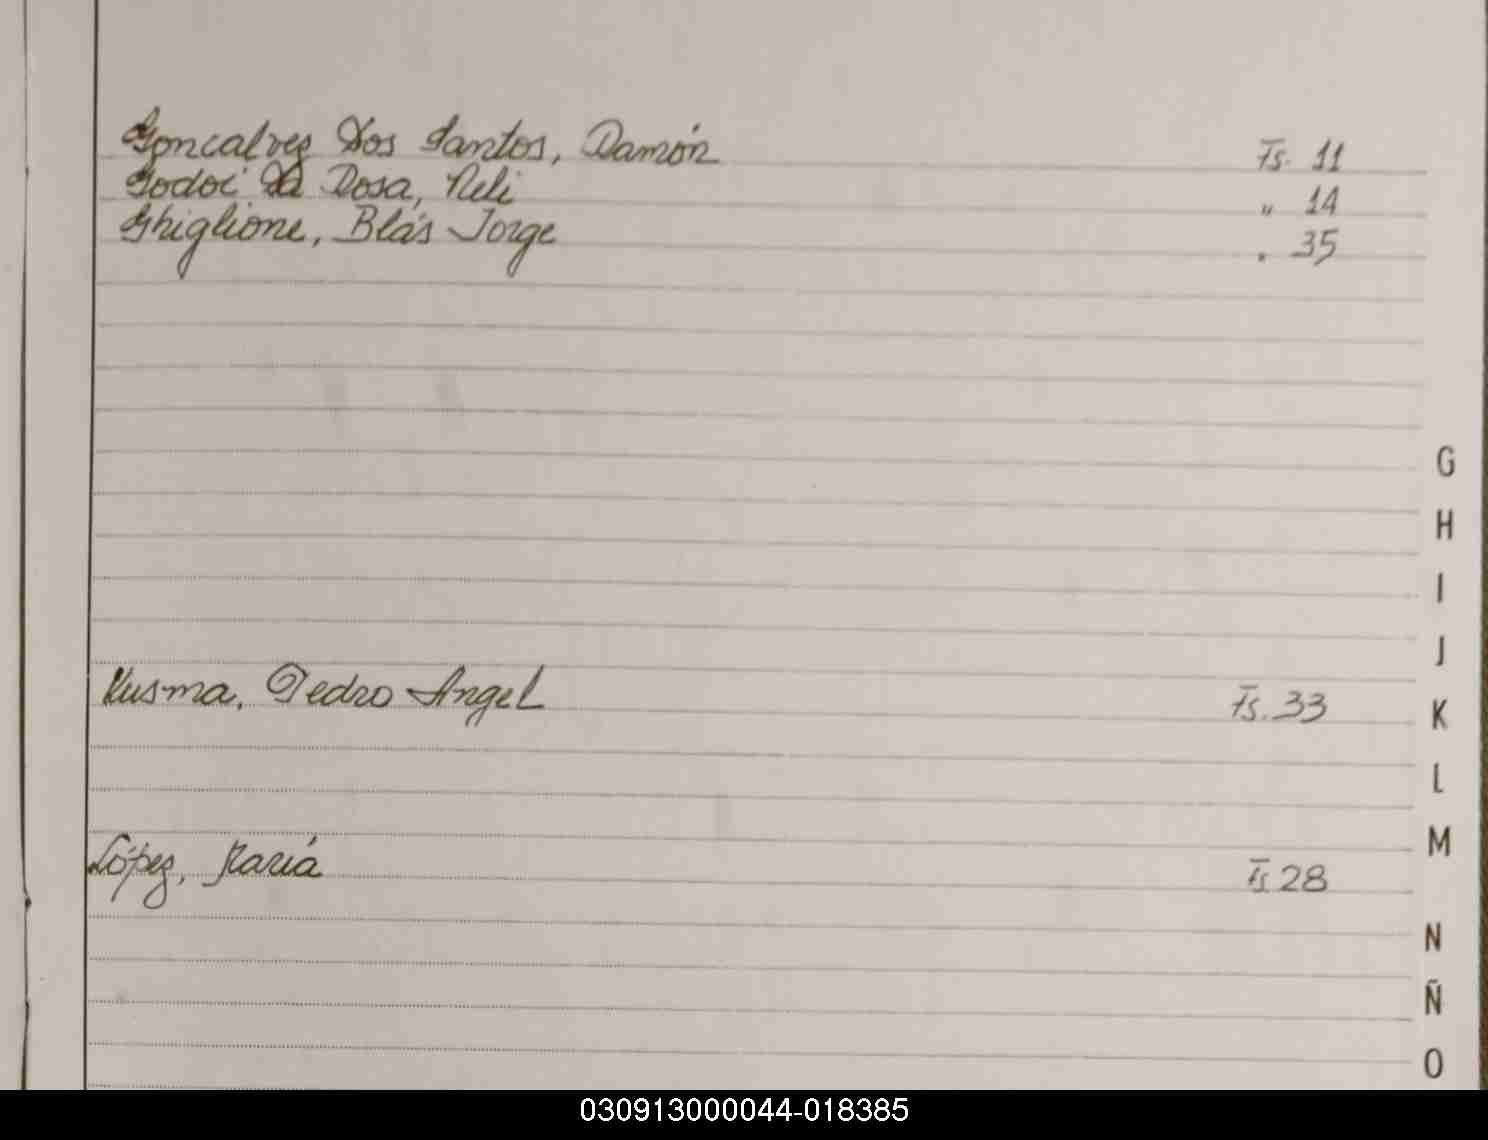 Goncalvez Dos Santos, Damón Fs. 11
Godoi Da Dosa, Neli " 14
Ghiglione, Blás Jorge " 35
G
H
I
J
Kusma, Pedro Angel Fs. 33
K
L
M
López, María Fs 28
N
Ñ
O
030913000044-018385